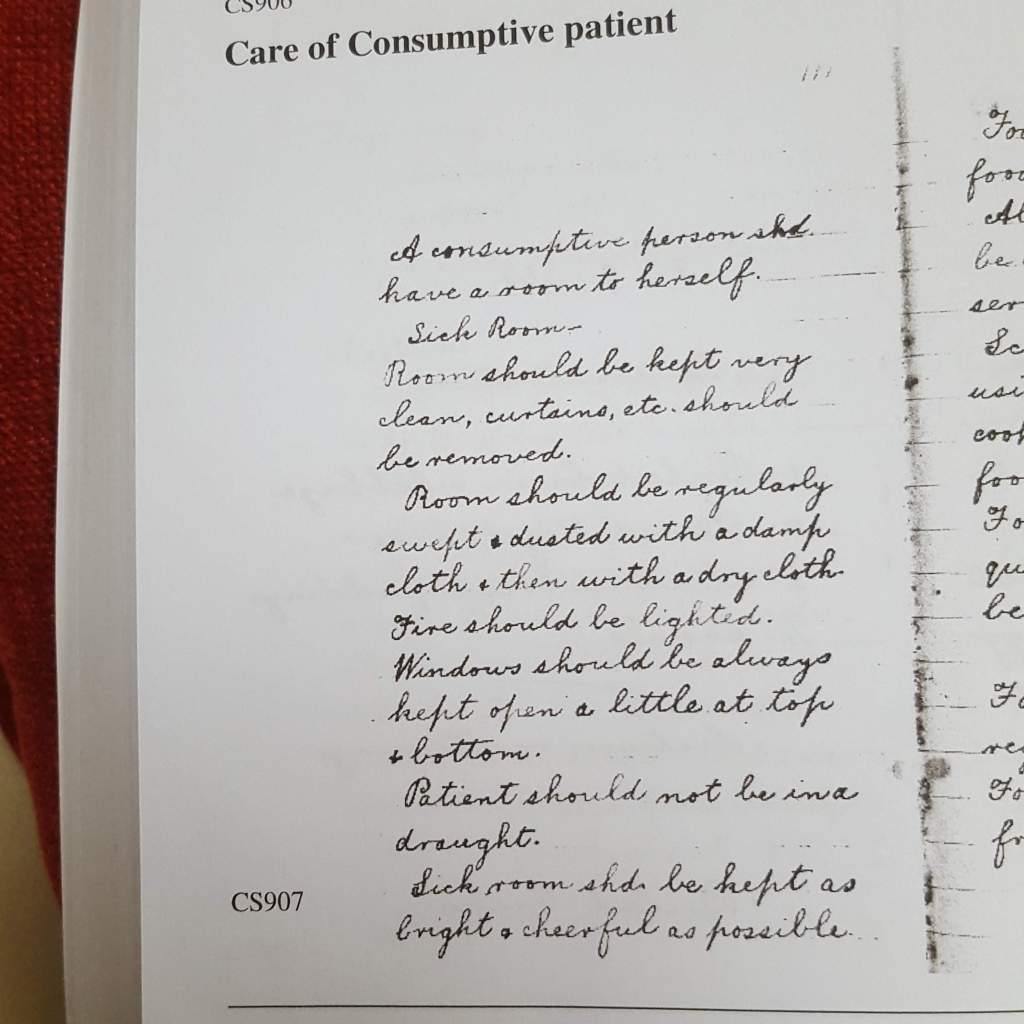 CS906
Care of Consumptive patient
A consumptive person shd.
have a room to herself.
Sick Room-
Room should be kept very
clean, curtains, etc. should
be removed.
Room should be regularly
swept & dusted with a damp
cloth & then with a dry cloth.
Fire should be lighted.
Windows should be always
kept open a little at top
& bottom.
Patient should not be in a
draught.
Sick room shd. be kept as
bright & cheerful as possible.
CS907